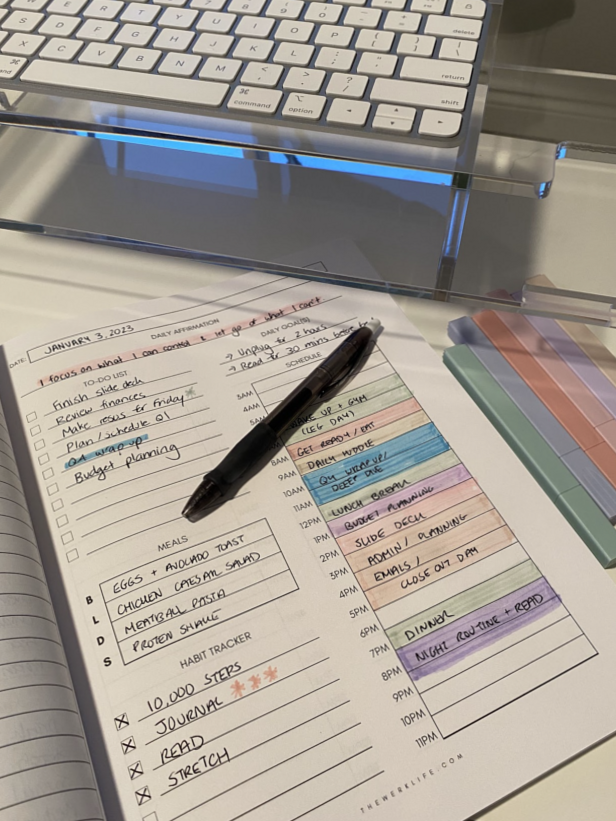 delete
return
shift
command
option
DATE: JANUARY 3, 2023
DAILY AFFIRMATION
I focus on what I can control & let go of what I can't
TO-DO LIST
Finish slide deck
Review finances
Make resus for Friday
Plan/schedule Q1
Q4 wrap up
Budget planning
MEALS
B EGGS + AVOCADO TOAST
L CHICKEN CAESAR SALAD
D MEATBALL PASTA
S PROTEIN SHAKE
HABIT TRACKER
10,000 STEPS
JOURNAL
READ
STRETCH
DAILY GOAL(S)
→ Unplug for 2 hours
→ Read for 30 mins before
SCHEDULE
3AM
4AM
WAKE UP + GYM
(LEG DAY)
GET READY / EAT
8AM
DAILY HUDDLE
9AM
Q4 WRAP UP/
10AM
DEEP DIVE
11AM
LUNCH BREAK
12PM
BUDGET PLANNING
1PM
SLIDE DECK
2PM
ADMIN / PLANNING
3PM
EMAILS /
4PM
CLOSE OUT DAY
5PM
6PM
DINNER
7PM
NIGHT ROUTINE + READ
8PM
9PM
10PM
11PM
THEWERKLIFE.COM